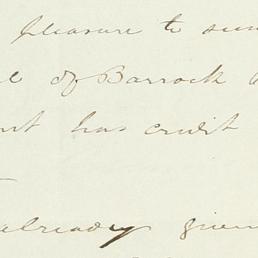 pleasure to
of Barrock
has credit
already given